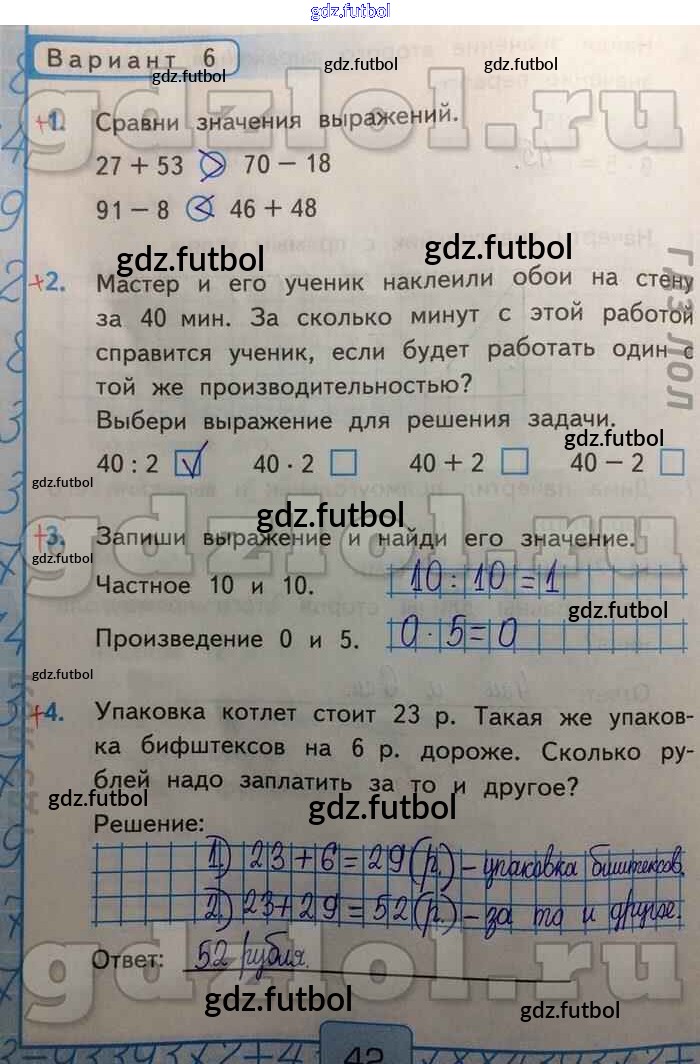 gdz.futbol
Вариант 6
gdz.futbol gdz.futbol gdz.futbol
gdzlol.ru
+1. Сравни значения выражений.
27 + 53 > 70 − 18
91 − 8 < 46 + 48
gdz.futbol gdz.futbol
ГДЗ ЛОЛ
+2. Мастер и его ученик наклеили обои на стену
за 40 мин. За сколько минут с этой работой
справится ученик, если будет работать один с
той же производительностью?
Выбери выражение для решения задачи.
gdz.futbol
40 : 2 ✓ 40 · 2 40 + 2 40 − 2
gdz.futbol
gdz.futbol
gdzlol.ru
+3. Запиши выражение и найди его значение.
gdz.futbol
Частное 10 и 10. 10 : 10 = 1
gdz.futbol
Произведение 0 и 5. 0 · 5 = 0
gdz.futbol
+4. Упаковка котлет стоит 23 р. Такая же упаков-
ка бифштексов на 6 р. дороже. Сколько ру-
блей надо заплатить за то и другое?
gdz.futbol gdz.futbol
Решение:
1) 23 + 6 = 29 (р.) – упаковка биштексов.
2) 23 + 29 = 52 (р.) – за то и другое.
gdzlol.ru
Ответ: 52 рубля.
gdz.futbol gdz.futbol
42